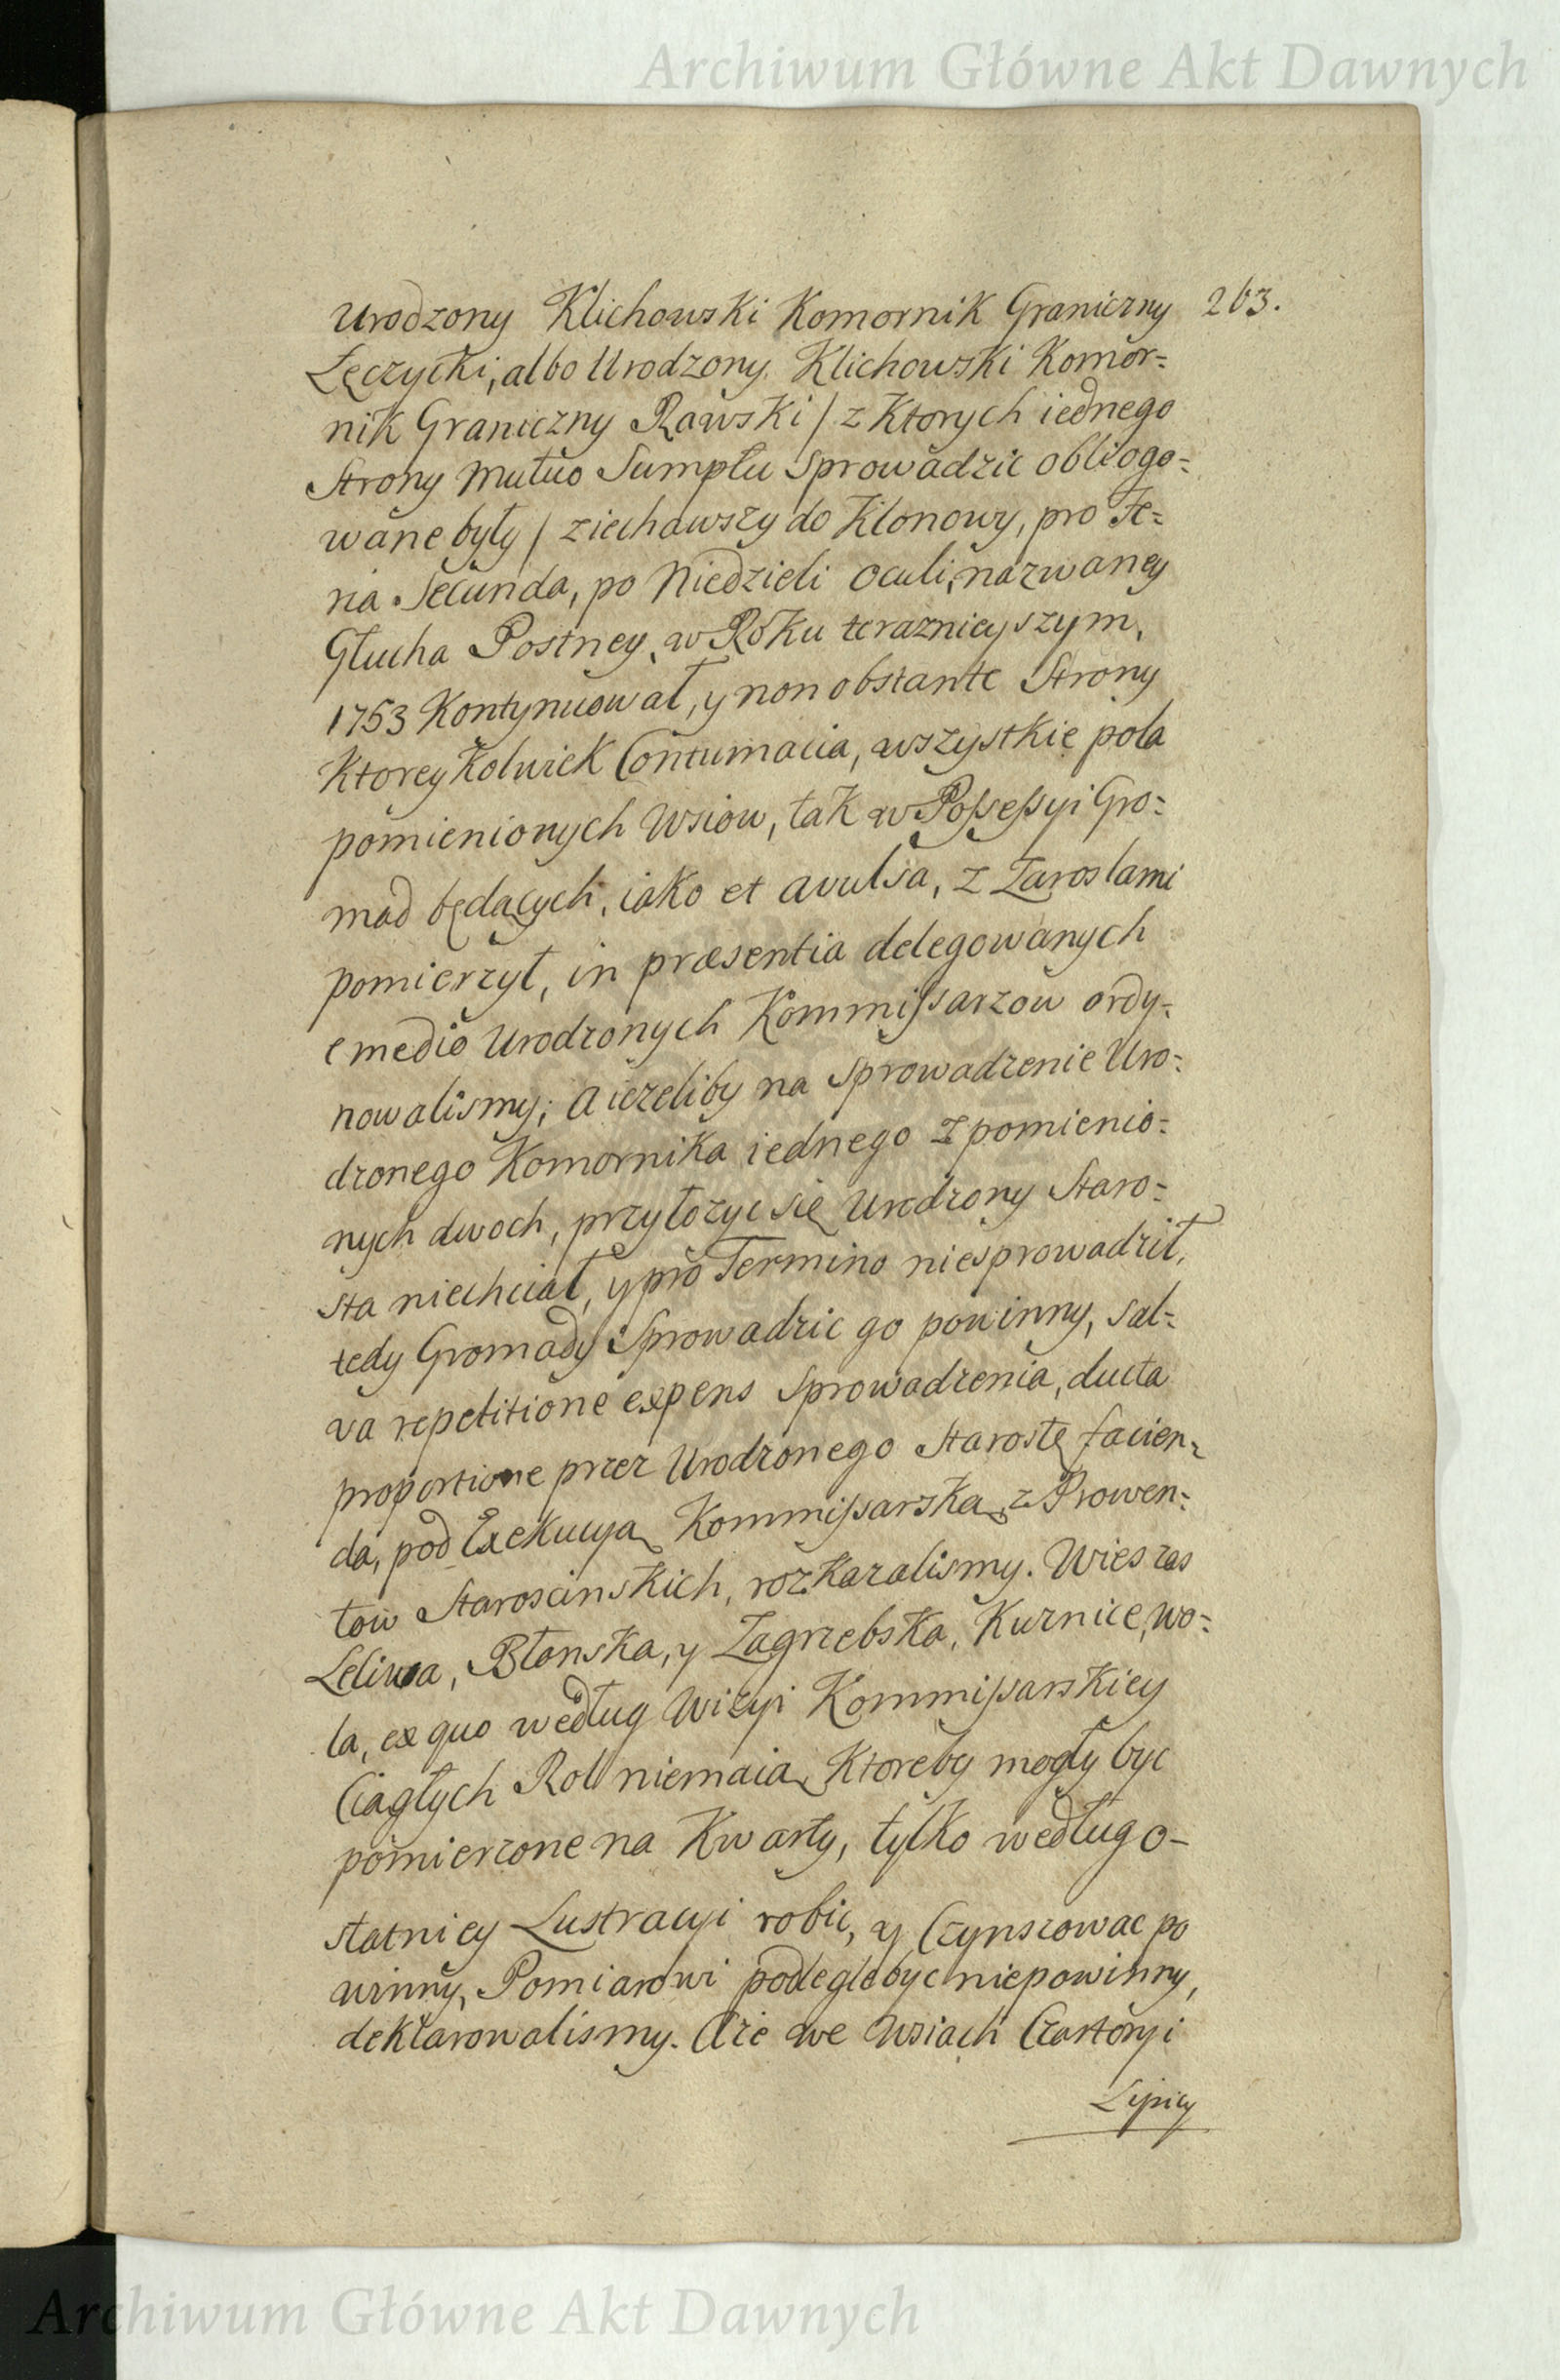 Archiwum Główne Akt Dawnych
263.
Urodzony Klichowski Komornik Graniczny
Łęczycki, albo Urodzony Klichowski Komor=
nik Graniczny Rawski / z Ktorych iednego
Strony mutuo Sumptu Sprowadzic obliogo=
wane były / ziechawszy do Klonowy, pro Fe=
ria Secunda, po Niedzieli Oculi, nazwaney
Głucha Postney, w Roku teraznieyszym,
1753 Kontynuował, y non obstante Strony
Ktorey Kolwiek Contumacia, wszystkie pola
pomienionych Wsiow, tak w Possessyi Gro=
mad będących, iako et avulsa, z Zaroslami
pomierzył, in præsentia delegowanych
e medio Urodzonych Kommissarzow ordy=
nowalismy; A iezeliby na Sprowadzenie Uro=
dzonego Komornika iednego z pomienio=
nych dwoch, przyłozyc się Urodzony Staro=
sta niechciał, y pro Termino niesprowadził,
tedy Gromady Sprowadzic go powinny, sal=
va repetitione expens Sprowadzenia, ducta
proportione przez Urodzonego Starostę facien=
da, pod Exekucyą Kommissarską, z Prowen=
tow Staroscinskich, rozkazalismy. Wies zas
Leliwa, Błonska, y Zagrzebska, Kuznice, Wo=
la, ex quo według Wizyi Kommissarskiey
Ciągłych Rol niemaią, Ktoreby mogły byc
pomierzone na Kwarty, tylko według o-
statniey Lustracyi robic, y Czynszowac po
winny, Pomiarowi podegle byc niepowinny,
deklarowalismy. A ze we Wsiach Czartoryi
Lipicy
Archiwum Główne Akt Dawnych